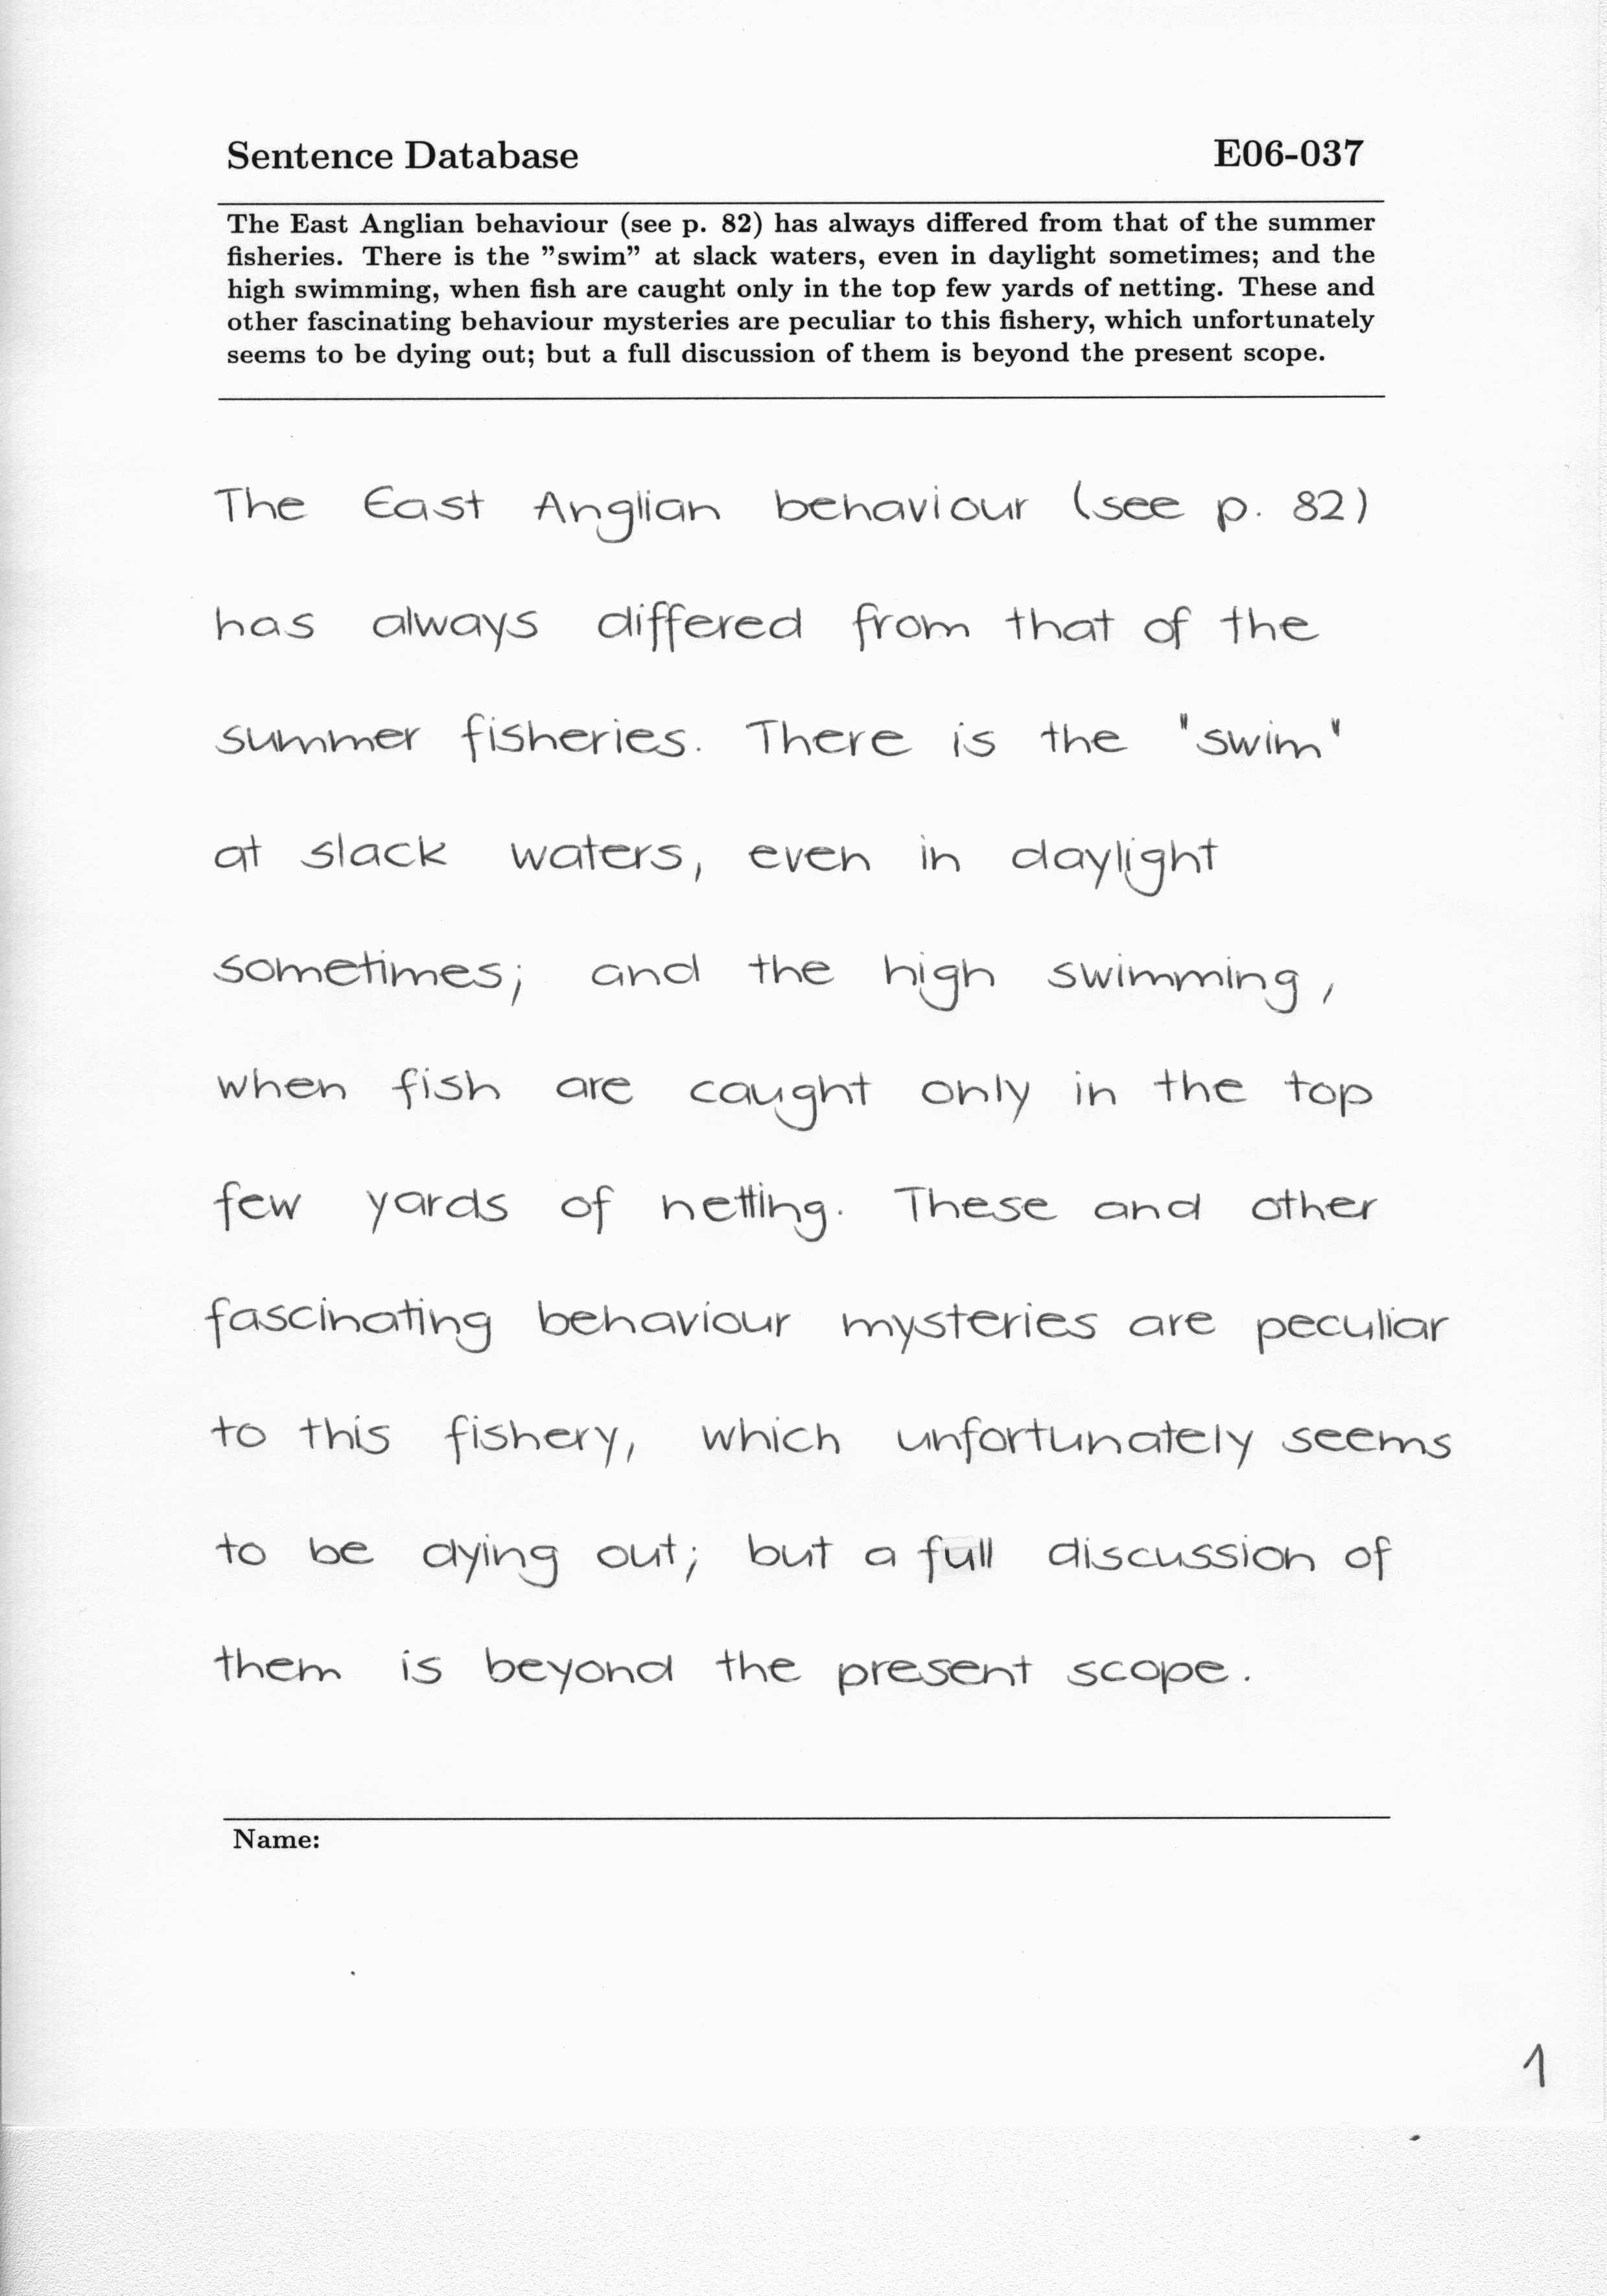 Sentence Database E06-037
The East Anglian behaviour (see p. 82) has always differed from that of the summer
fisheries. There is the "swim" at slack waters, even in daylight sometimes; and the
high swimming, when fish are caught only in the top few yards of netting. These and
other fascinating behaviour mysteries are peculiar to this fishery, which unfortunately
seems to be dying out; but a full discussion of them is beyond the present scope.
The East Anglian behaviour (see p. 82)
has always differed from that of the
summer fisheries. There is the "swim"
at slack waters, even in daylight
sometimes; and the high swimming,
when fish are caught only in the top
few yards of netting. These and other
fascinating behaviour mysteries are peculiar
to this fishery, which unfortunately seems
to be dying out; but a full discussion of
them is beyond the present scope.
Name:
1